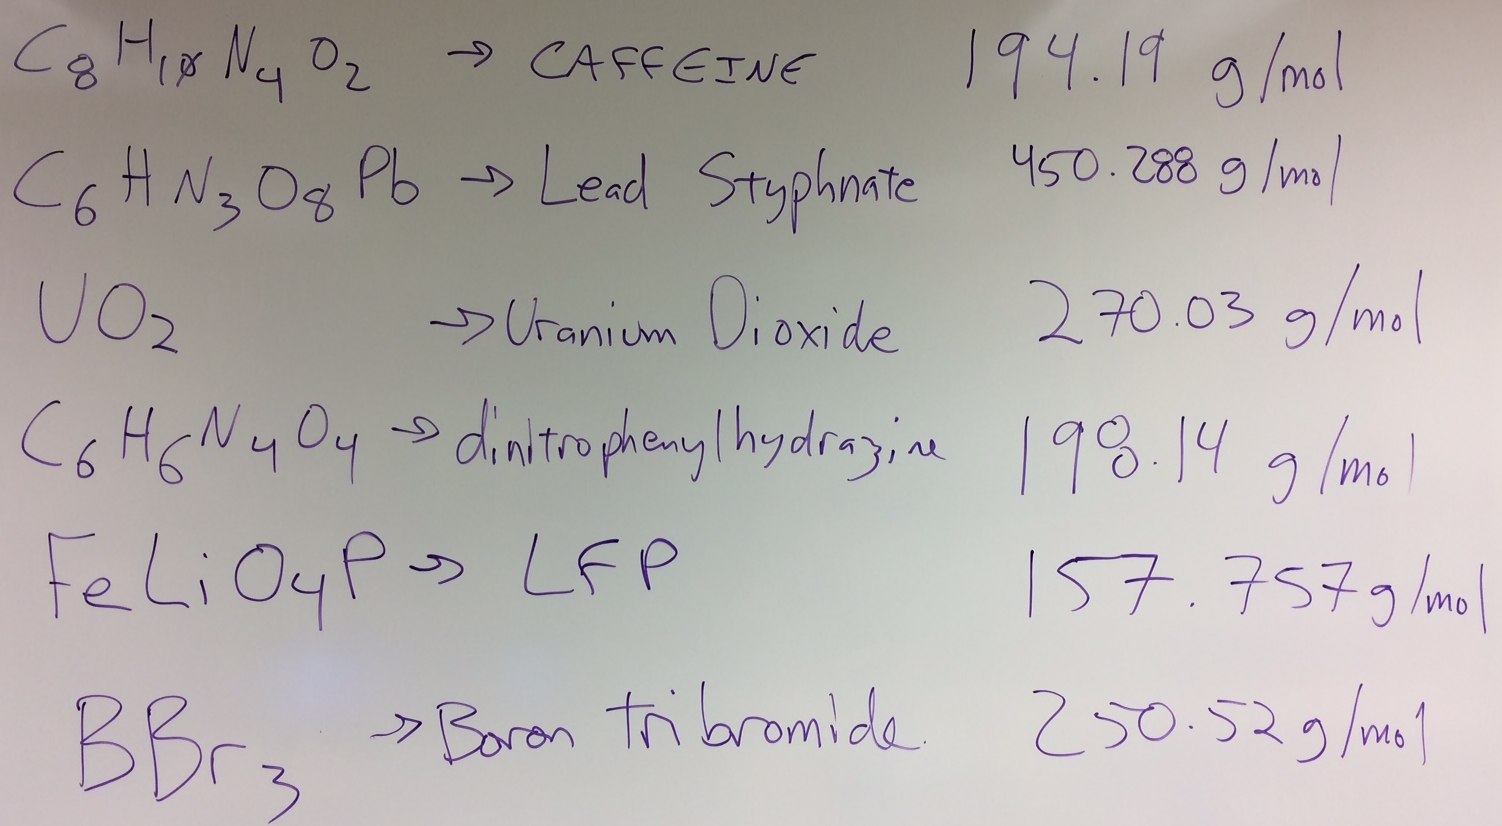 C₈H₁₀N₄O₂ → CAFFEINE 194.19 g/mol
C₆HN₃O₈Pb → Lead Styphnate 450.288 g/mol
UO₂ → Uranium Dioxide 270.03 g/mol
C₆H₆N₄O₄ → dinitrophenylhydrazine 198.14 g/mol
FeLiO₄P → LFP 157.757 g/mol
BBr₃ → Boron tribromide. 250.52 g/mol